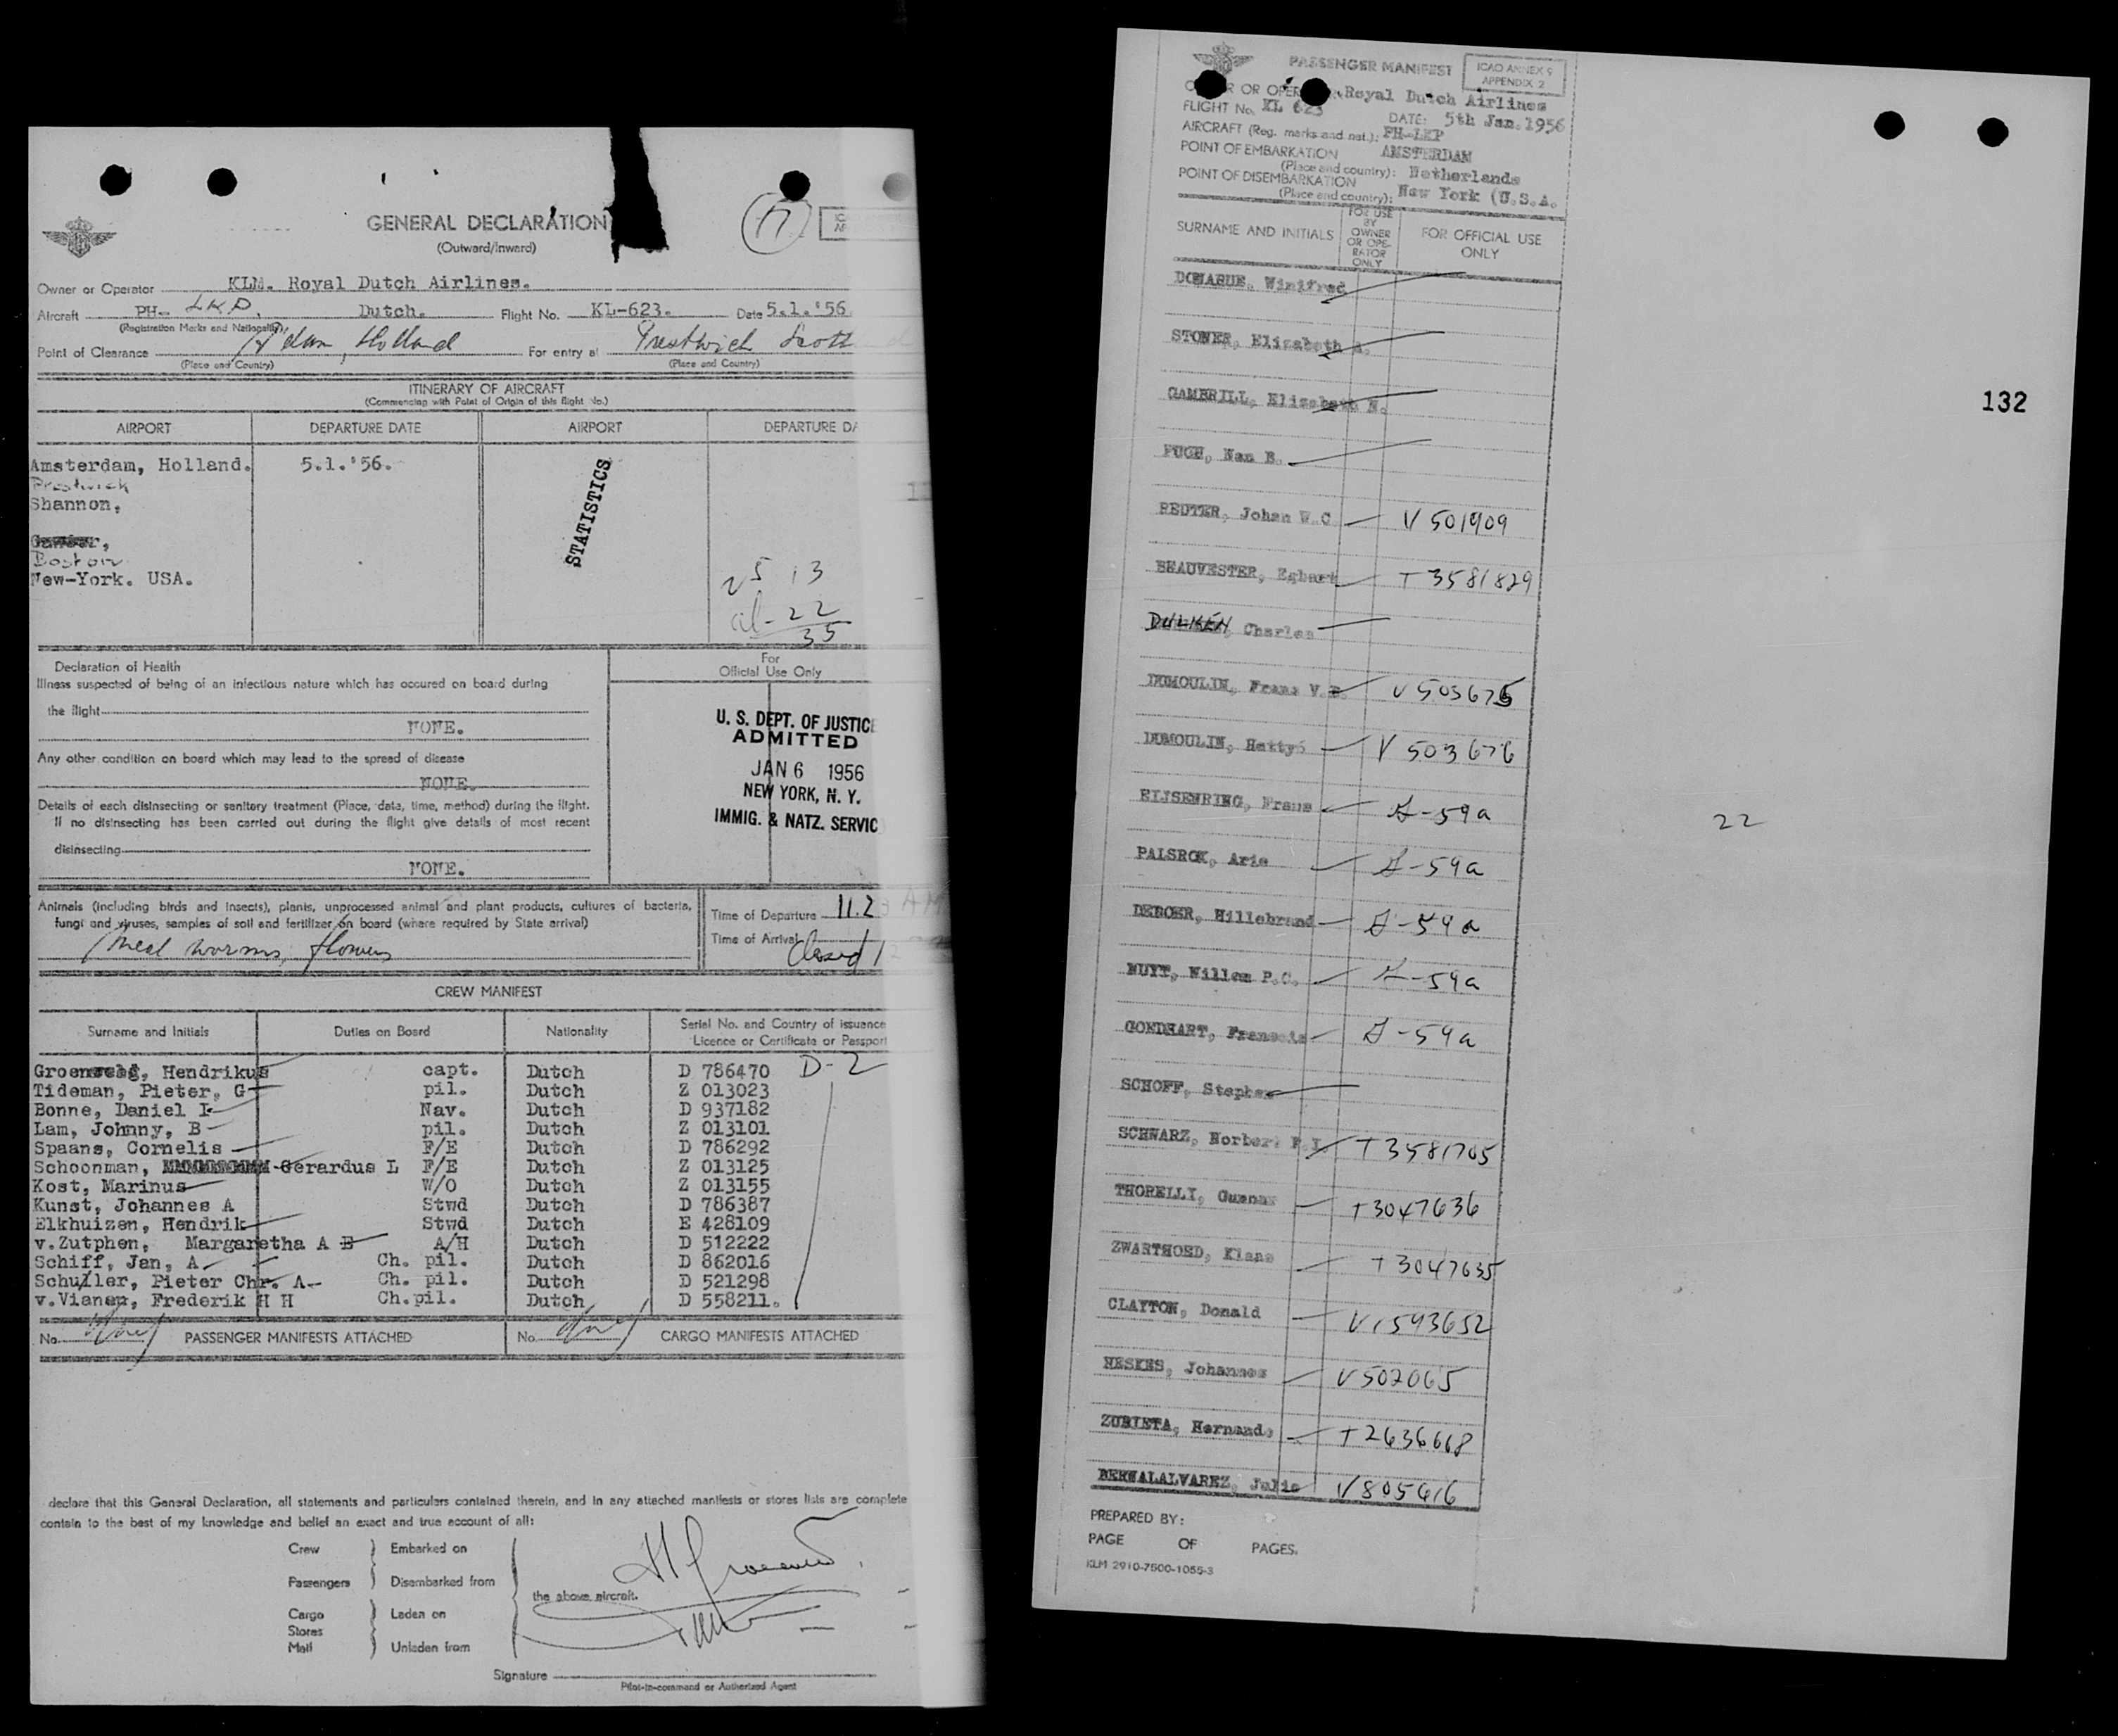 GENERAL DECLARATION
(Outward/Inward)
17
Owner or Operator KLM. Royal Dutch Airlines.
Aircraft PH- LKP. Dutch. Flight No. KL-623. Date 5.1.'56
(Registration Marks and Nationality)
Point of Clearance A'dam, Holland For entry at Prestwich Scott
(Place and Country) (Place and Country)
ITINERARY OF AIRCRAFT
(Commencing with Point of Origin of this flight No.)
AIRPORT DEPARTURE DATE AIRPORT DEPARTURE DA
Amsterdam, Holland. 5.1.'56.
Prestwick
Shannon,
STATISTICS
Boston
New-York. USA.
us 13
al- 22
35
Declaration of Health
Illness suspected of being of an infectious nature which has occured on board during
the flight
NONE.
Any other condition on board which may lead to the spread of disease
NONE.
Details of each disinsecting or sanitary treatment (Place, date, time, method) during the flight.
If no disinsecting has been carried out during the flight give details of most recent
disinsecting
NONE.
For
Official Use Only
U. S. DEPT. OF JUSTICE
ADMITTED
JAN 6 1956
NEW YORK, N. Y.
IMMIG. & NATZ. SERVIC
Animals (including birds and insects), plants, unprocessed animal and plant products, cultures of bacteria,
fungi and viruses, samples of soil and fertilizer on board (where required by State arrival)
Meal worms, flowers
Time of Departure 11.2
Time of Arrival Closed
CREW MANIFEST
Surname and Initials Duties on Board Nationality Serial No. and Country of issuance
Licence or Certificate or Passport
Groenweg, Hendrikus capt. Dutch D 786470 D-2
Tideman, Pieter, G pil. Dutch Z 013023
Bonne, Daniel I Nav. Dutch D 937182
Lam, Johnny, B pil. Dutch Z 013101
Spaans, Cornelis F/E Dutch D 786292
Schoonman, Gerardus L F/E Dutch Z 013125
Kost, Marinus W/O Dutch Z 013155
Kunst, Johannes A Stwd Dutch D 786387
Elkhuizen, Hendrik Stwd Dutch E 428109
v.Zutphen, Margaretha A E A/H Dutch D 512222
Schiff, Jan, A. Ch. pil. Dutch D 862016
Schuller, Pieter Chr. A. Ch. pil. Dutch D 521298
v.Vianen, Frederik H H Ch.pil. Dutch D 558211.
No. PASSENGER MANIFESTS ATTACHED No. CARGO MANIFESTS ATTACHED
declare that this General Declaration, all statements and particulars contained therein, and in any attached manifests or stores lists are complete
contain to the best of my knowledge and belief an exact and true account of all:
Crew Embarked on
Passengers Disembarked from
the above aircraft.
Cargo Laden on
Stores
Mail Unladen from
Signature
Pilot-in-command or Authorized Agent
PASSENGER MANIFEST
ICAO ANNEX 9
APPENDIX 2
OR OPER Royal Dutch Airlines
FLIGHT No. KL 623 DATE: 5th Jan. 1956
AIRCRAFT (Reg. marks and nat.): PH-LKP
POINT OF EMBARKATION AMSTERDAM
(Place and country): Netherlands
POINT OF DISEMBARKATION
(Place and country): New York (U.S.A.
SURNAME AND INITIALS
FOR USE BY OWNER OR OPERATOR ONLY
FOR OFFICIAL USE ONLY
DONAHUE, Winifred
STONER, Elizabeth A.
GAMBRILL, Elizabeth N.
PUGH, Nan E.
REUTER, Johan W.C. V 501909
BEAUVESTER, Egbart T 3581829
DULKEN, Charles
DUMOULIN, Frans V.E. V 503675
DUMOULIN, Hetty V 503676
EIJSENRING, Frans A-59a
PALSROK, Arie A-59a
DEBOER, Hillebrand A-59a
NUYT, Willem P.C. A-59a
GOEDHART, Francois A-59a
SCHOFF, Stephen
SCHWARZ, Norbert F.I. T 3581705
THORELLI, Gunnar T3047636
ZWARTHOED, Klaas T 3047635
CLAYTON, Donald V1593652
HESKES, Johannes V 502065
ZUBIETA, Hernando T 2636668
BERNALALVAREZ, Julio V 805616
PREPARED BY:
PAGE OF PAGES.
KLM 2910-7500-1055-3
132
22